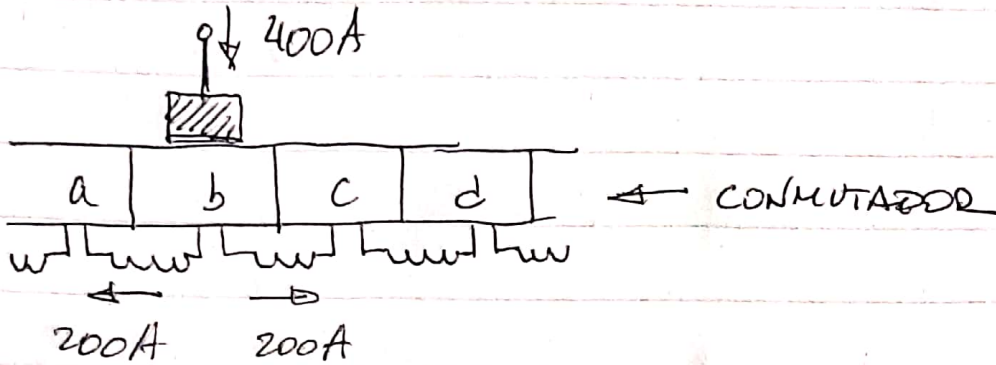 400A
a b c d
CONMUTADOR
200A 200A